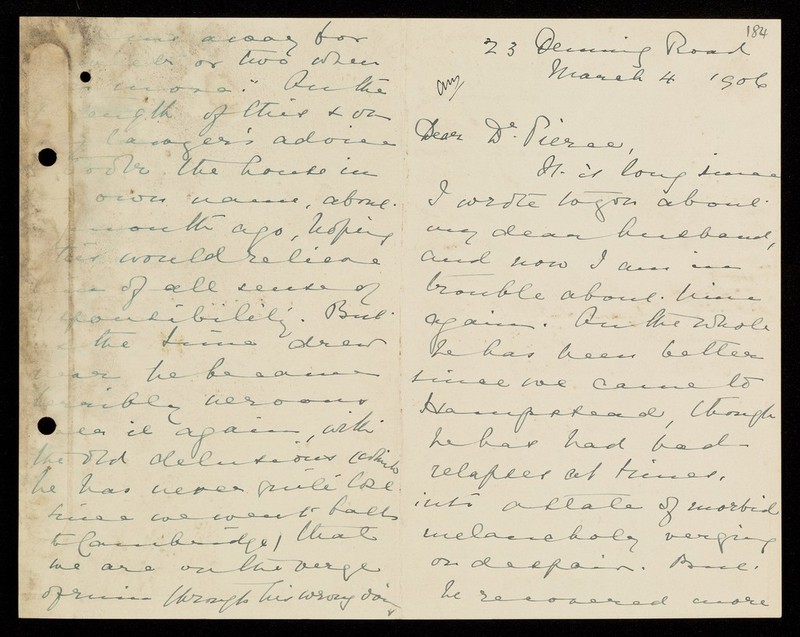 184
23 Denning Road
March 4 1906
Dear Dr. Pierce,
It is long since
I wrote to you about
my dear husband,
and now I am in
trouble about him
again. On the whole
he has been better
since we came to
Hampstead, though
he has had bad
relapses at times,
into a state of morbid
melancholy verging
on despair. But
he recovered more
away for
or two when
." On the
of this & on
lawyer's advice
took the house in
own name, about
month ago, hoping
this would relieve
of all sense of
responsibility. But
the time drew
near he became
terribly nervous
over it again, with
the old delusions (which
he has never quite lost
since we went back
to Cambridge) that
we are on the verge
of ruin through his wrong doing